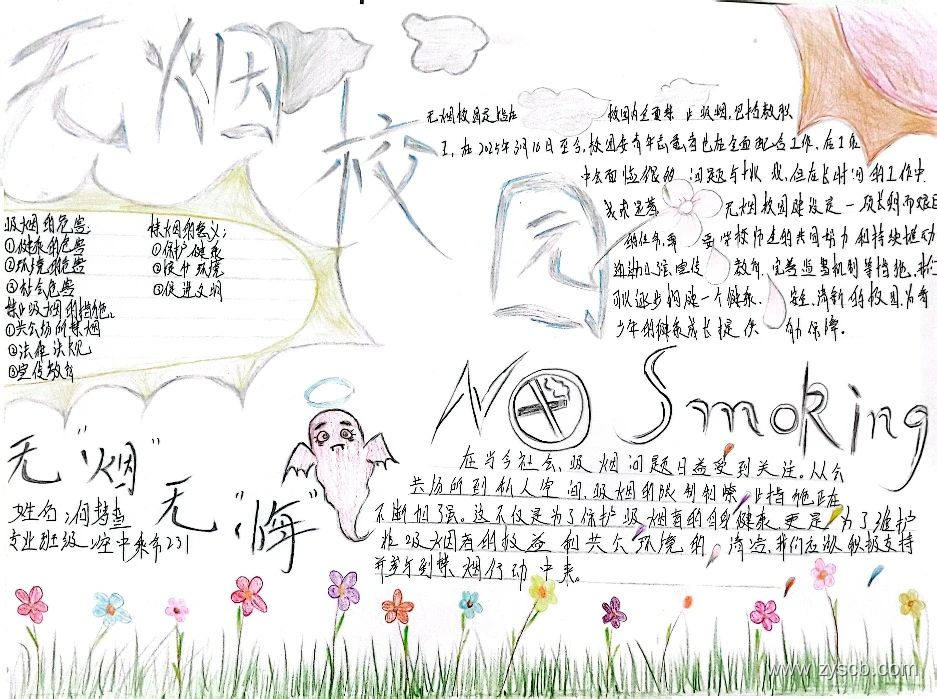 无烟校园
无烟校园是指在校园内全面禁止吸烟，包括教职
工，在2025年3月10日至今，校园
中会面临很多问题与挑战，但在长时间的工作中
无烟校园建设是一项长期而艰巨
的任务，需要学校师生的共同努力和持续推动
通过加强宣传教育、完善监督机制等措施，我们
可以逐步构建一个健康、安全、清新的校园为青
少年的健康成长提供助保障。
吸烟的危害：
①健康的危害
②环境的危害
③社会危害
禁止吸烟的措施。
①共公场所禁烟
②法律法规
③宣传教育
禁烟的意义：
①保护健康
②保护环境
③促进文明
NO Smoking
在当今社会，吸烟问题日益受到关注。从公
共场所到私人空间，吸烟的限制和禁止措施正在
不断加强。这不仅是为了保护吸烟者的自身健康，更是为了维护
非吸烟者的权益和共公环境的清洁，我们应积极支持
并参与到禁烟行动中来。
无“烟”
无“悔”
姓名：何
专业班级：空中乘务231
www.zyscb.com